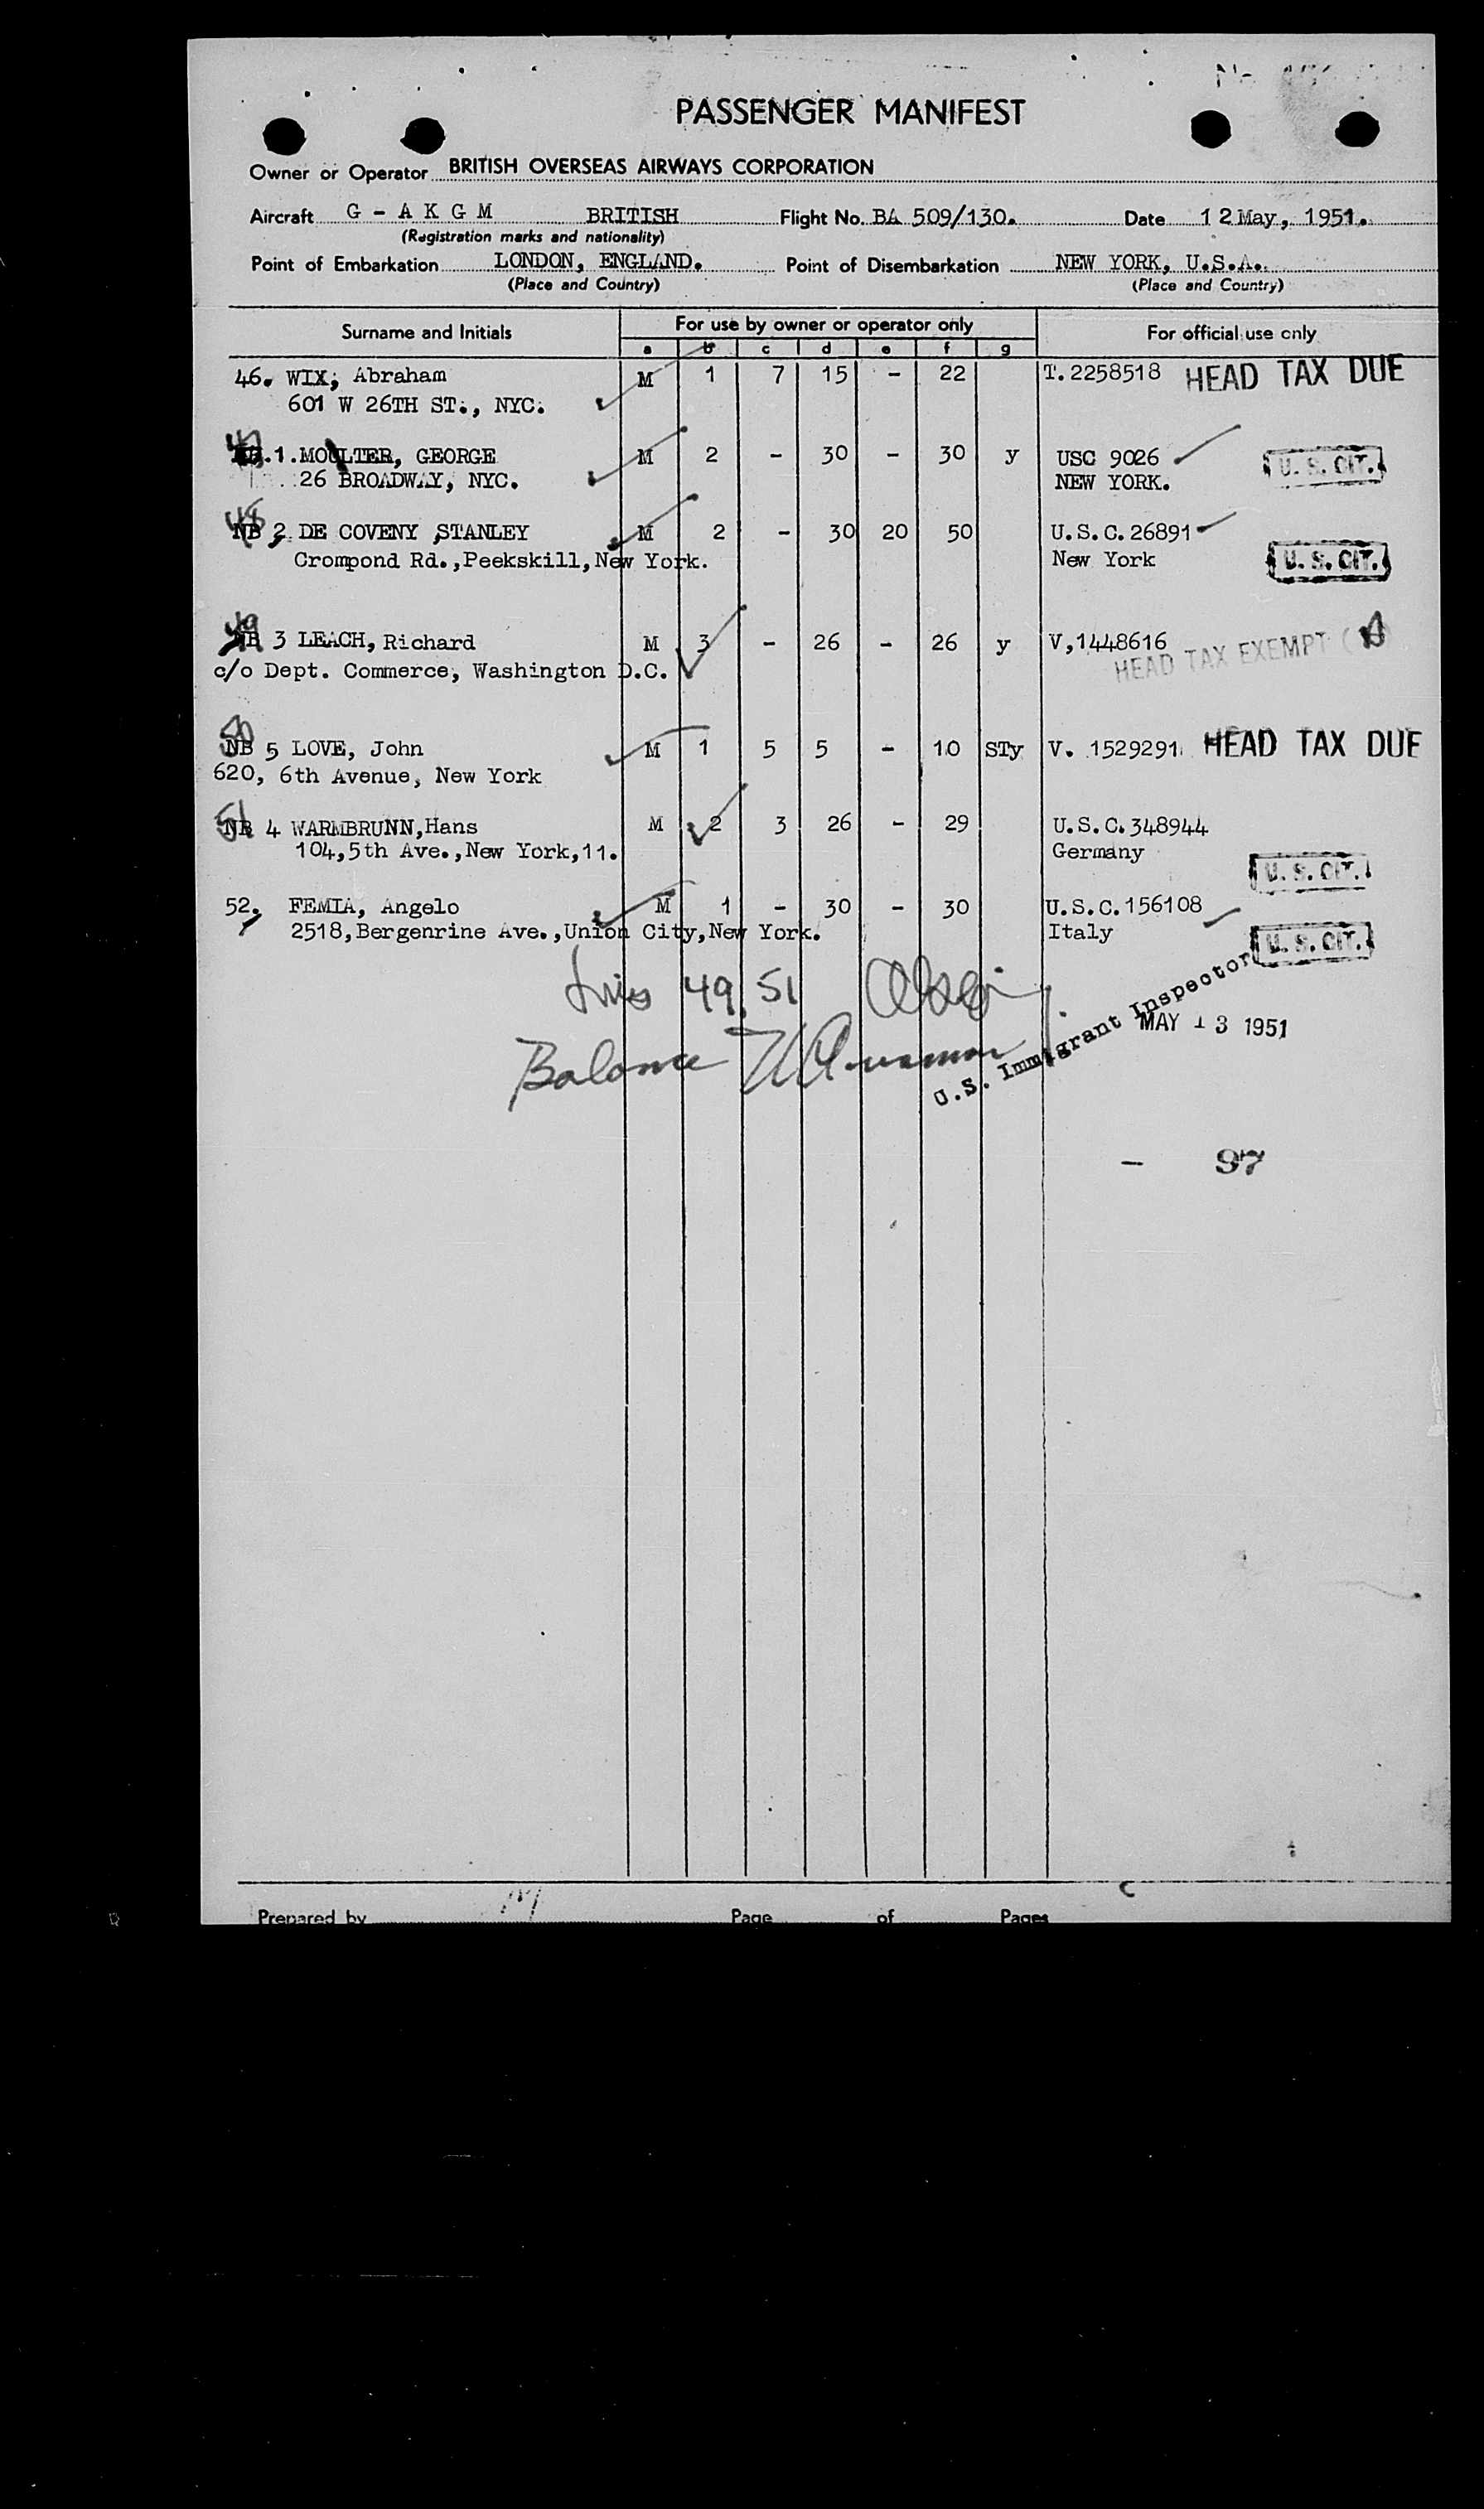 PASSENGER MANIFEST
Owner or Operator BRITISH OVERSEAS AIRWAYS CORPORATION
Aircraft G - A K G M BRITISH Flight No. BA 509/130. Date 12 May, 1951.
(Registration marks and nationality)
Point of Embarkation LONDON, ENGLAND. Point of Disembarkation NEW YORK, U.S.A.
(Place and Country) (Place and Country)
Surname and Initials For use by owner or operator only For official use only
a b c d e f g
46. WIX, Abraham M 1 7 15 - 22 T.2258518 HEAD TAX DUE
601 W 26TH ST., NYC.
47 1. MOULTER, GEORGE M 2 - 30 - 30 y USC 9026 U. S. CIT.
26 BROADWAY, NYC. NEW YORK.
48 NB 2 DE COVENY, STANLEY M 2 - 30 20 50 U.S.C.26891
Crompond Rd.,Peekskill,New York. New York U. S. CIT.
49 NB 3 LEACH, Richard M 3 - 26 - 26 y V,1448616 HEAD TAX EXEMPT
c/o Dept. Commerce, Washington D.C.
50 NB 5 LOVE, John M 1 5 5 - 10 STy V. 1529291 HEAD TAX DUE
620, 6th Avenue, New York
51 NB 4 WARMBRUNN,Hans M 2 3 26 - 29 U.S.C.348944
104,5th Ave.,New York,11. Germany U. S. CIT.
52. FEMIA, Angelo M 1 - 30 - 30 U.S.C.156108
2518,Bergenrine Ave.,Union City,New York. Italy U. S. CIT.
49, 51
Balance
U.S. Immigrant Inspector
MAY 13 1951
- 97
Prepared by Page of Pages